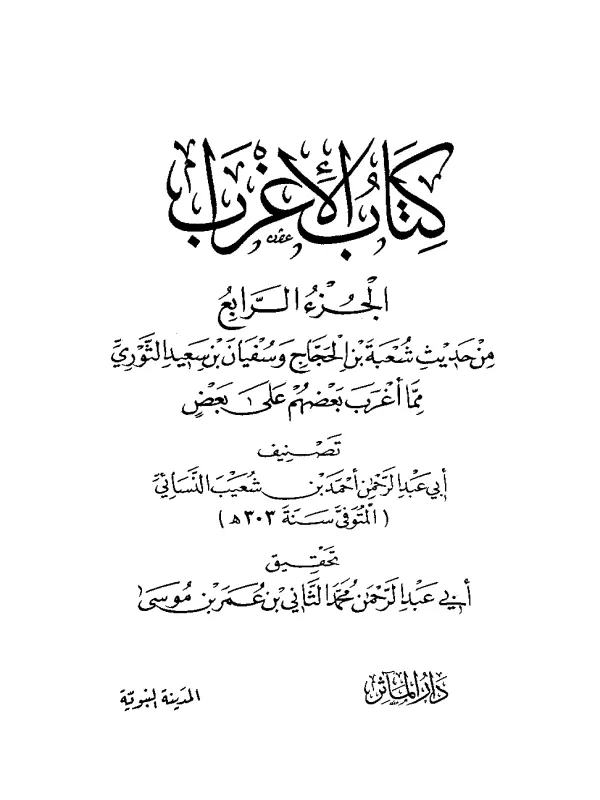 كِتَابُ الْإِغْرَابِ
الْجُزْءُ الرَّابِعُ
مِنْ حَدِيْثِ شُعْبَةَ بْنِ الْحَجَّاجِ وَسُفْيَانَ بْنِ سَعِيدٍ الثَّوْرِيِّ
مِمَّا أَغْرَبَ بَعْضُهُمْ عَلَى بَعْضٍ
تَصْنِيف
أَبِي عَبْدِ الرَّحْمٰنِ أَحْمَدَ بْنِ شُعَيْبَ النَّسَائِيِّ
( الْمُتَوَفَّى سَنَةَ ٣٠٣ ه )
تَحْقِيق
أَبِي عَبْدِ الرَّحْمٰنِ مُحَمَّد الثَّانِي بْنِ عُمَرَ بْنِ مُوسَى
دَارُ المَآثِر
المدينة النبويّة